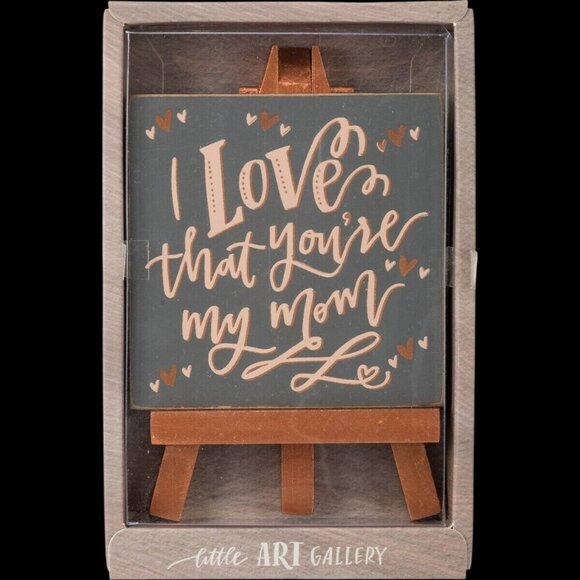 I Love
that you're
my mom
little ART GALLERY